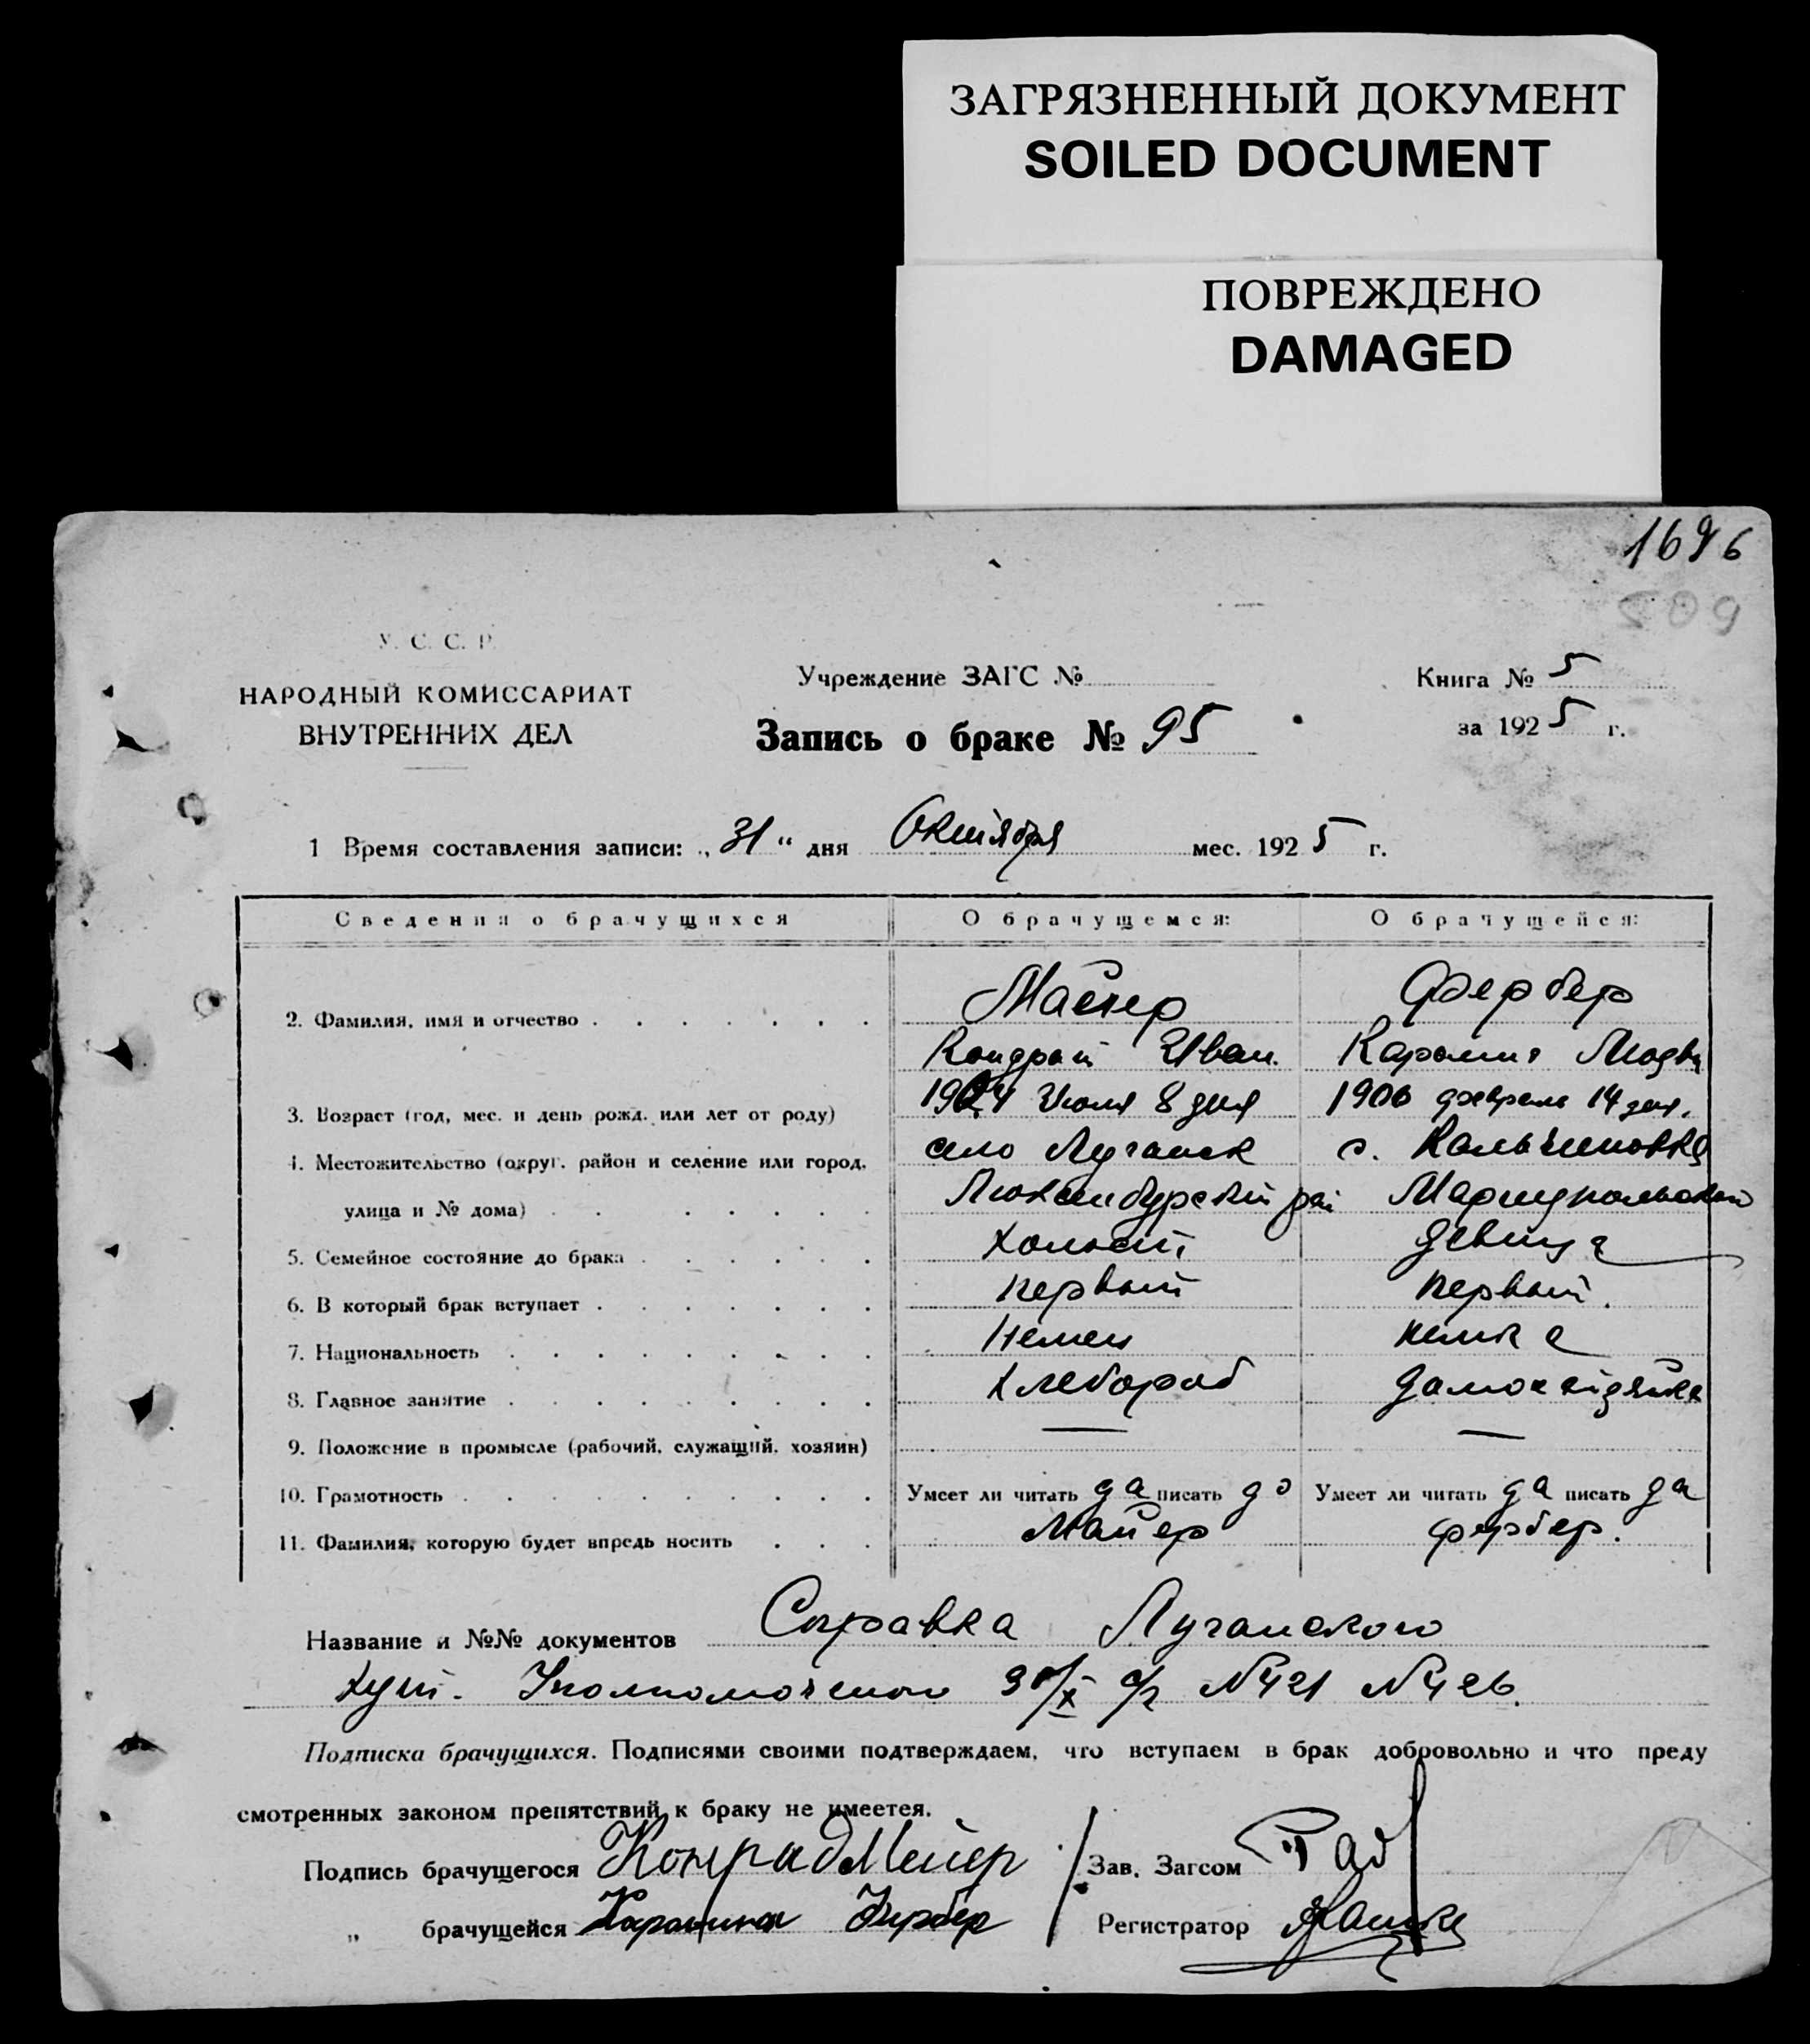 ЗАГРЯЗНЕННЫЙ ДОКУМЕНТ
SOILED DOCUMENT
ПОВРЕЖДЕНО
DAMAGED
1696
509
У. С. С. Р.
НАРОДНЫЙ КОМИССАРИАТ
ВНУТРЕННИХ ДЕЛ
Учреждение ЗАГС №
Запись о браке № 95
Книга № 5
за 1925 г.
1 Время составления записи: „31“ дня Октября мес. 1925 г.
Сведения о брачущихся О брачущемся: О брачущейся:
Майер Фербер
2. Фамилия, имя и отчество
Кондрат Иван. Каролина
3. Возраст (год, мес. и день рожд. или лет от роду) Июля 8 дня 1906 февраля 14 дня.
4. Местожительство (округ. район и селение или город, село Луганск с. Кальчиновка
улица и № дома) Люксембурский рай Мариупольский
5. Семейное состояние до брака холост девица
6. В который брак вступает первый первый.
7. Национальность Немец немка
8. Главное занятие хлебороб домохазяйка
9. Положение в промысле (рабочий, служащий, хозяин) — —
10. Грамотность Умеет ли читать да писать да Умеет ли читать да писать да
11. Фамилия, которую будет впредь носить Майер Фербер.
Название и №№ документов Справка Луганского
хут. 30/X с/г № 421 № 426.
Подписка брачущихся. Подписями своими подтверждаем, что вступаем в брак добровольно и что преду
смотренных законом препятствий к браку не имеется.
Подпись брачущегося Конрад Мейер Зав. Загсом
„ брачущейся Каролина Фербер Регистратор